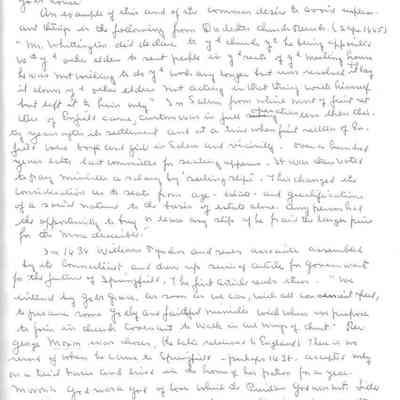 your house.
An example of this and of the common desire to avoid unpleas-
ant things is the following from Dudestic church Records. (Sept 1665)
"Mr. Whittington did declare to ye church yt he being appointed
wth ye other elders to seat people in ye seats of ye meeting house
he was not willing to do ye work any longer but was resolved to lay
it down ye other elders not acting in that thing with himself
but left it to him only." In Salem from which most of first set
tlers of Enfield came, custom was in full operation less than thir-
ty years after its settlement and at a time when first settlers of En-
field were boys and girls in Salem and vicinity. Over a hundred
years later last committee for seating appears. It was then voted
to pay minister a salary by "seating slips". This changed the
consideration as to seats from age - and qualifications
of a social nature to the basis of estate alone. Any person had
the opportunity to buy or lease any slip if he paid the larger price
for the "more desirable".
In 1636 William Pynchon and seven associates assembled
by the Connecticut, and drew up series of articles for Government
for the future of Springfield. The first article reads thus. "We
intend by God's Grace, as soon as we can, with all convenient speed,
to procure some Godly and faithful minister with whom we propose
to join in church Covenant to walk in all ways of Christ." Rev
George Moxon was chosen, (he later returned to England). There is no
record of when he came to Springfield - perhaps 1637. accepted only
on a trial basis and lived in the home of his patron for a year.
Moxon's God was a God of love which the Puritan God was not.